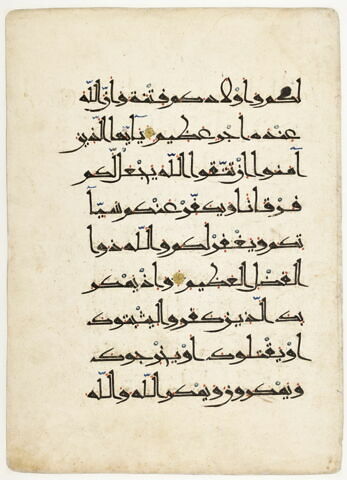 لكم وأولادكم فتنة وأن الله
عنده أجر عظيم يا أيها الذين
آمنوا إن تتقوا الله يجعل لكم
فرقانا ويكفر عنكم سيآ
تكم ويغفر لكم والله ذوا
الفضل العظيم وإذ يمكر
بك الذين كفروا ليثبتوك
أو يقتلوك أو يخرجوك
ويمكرون ويمكر الله والله